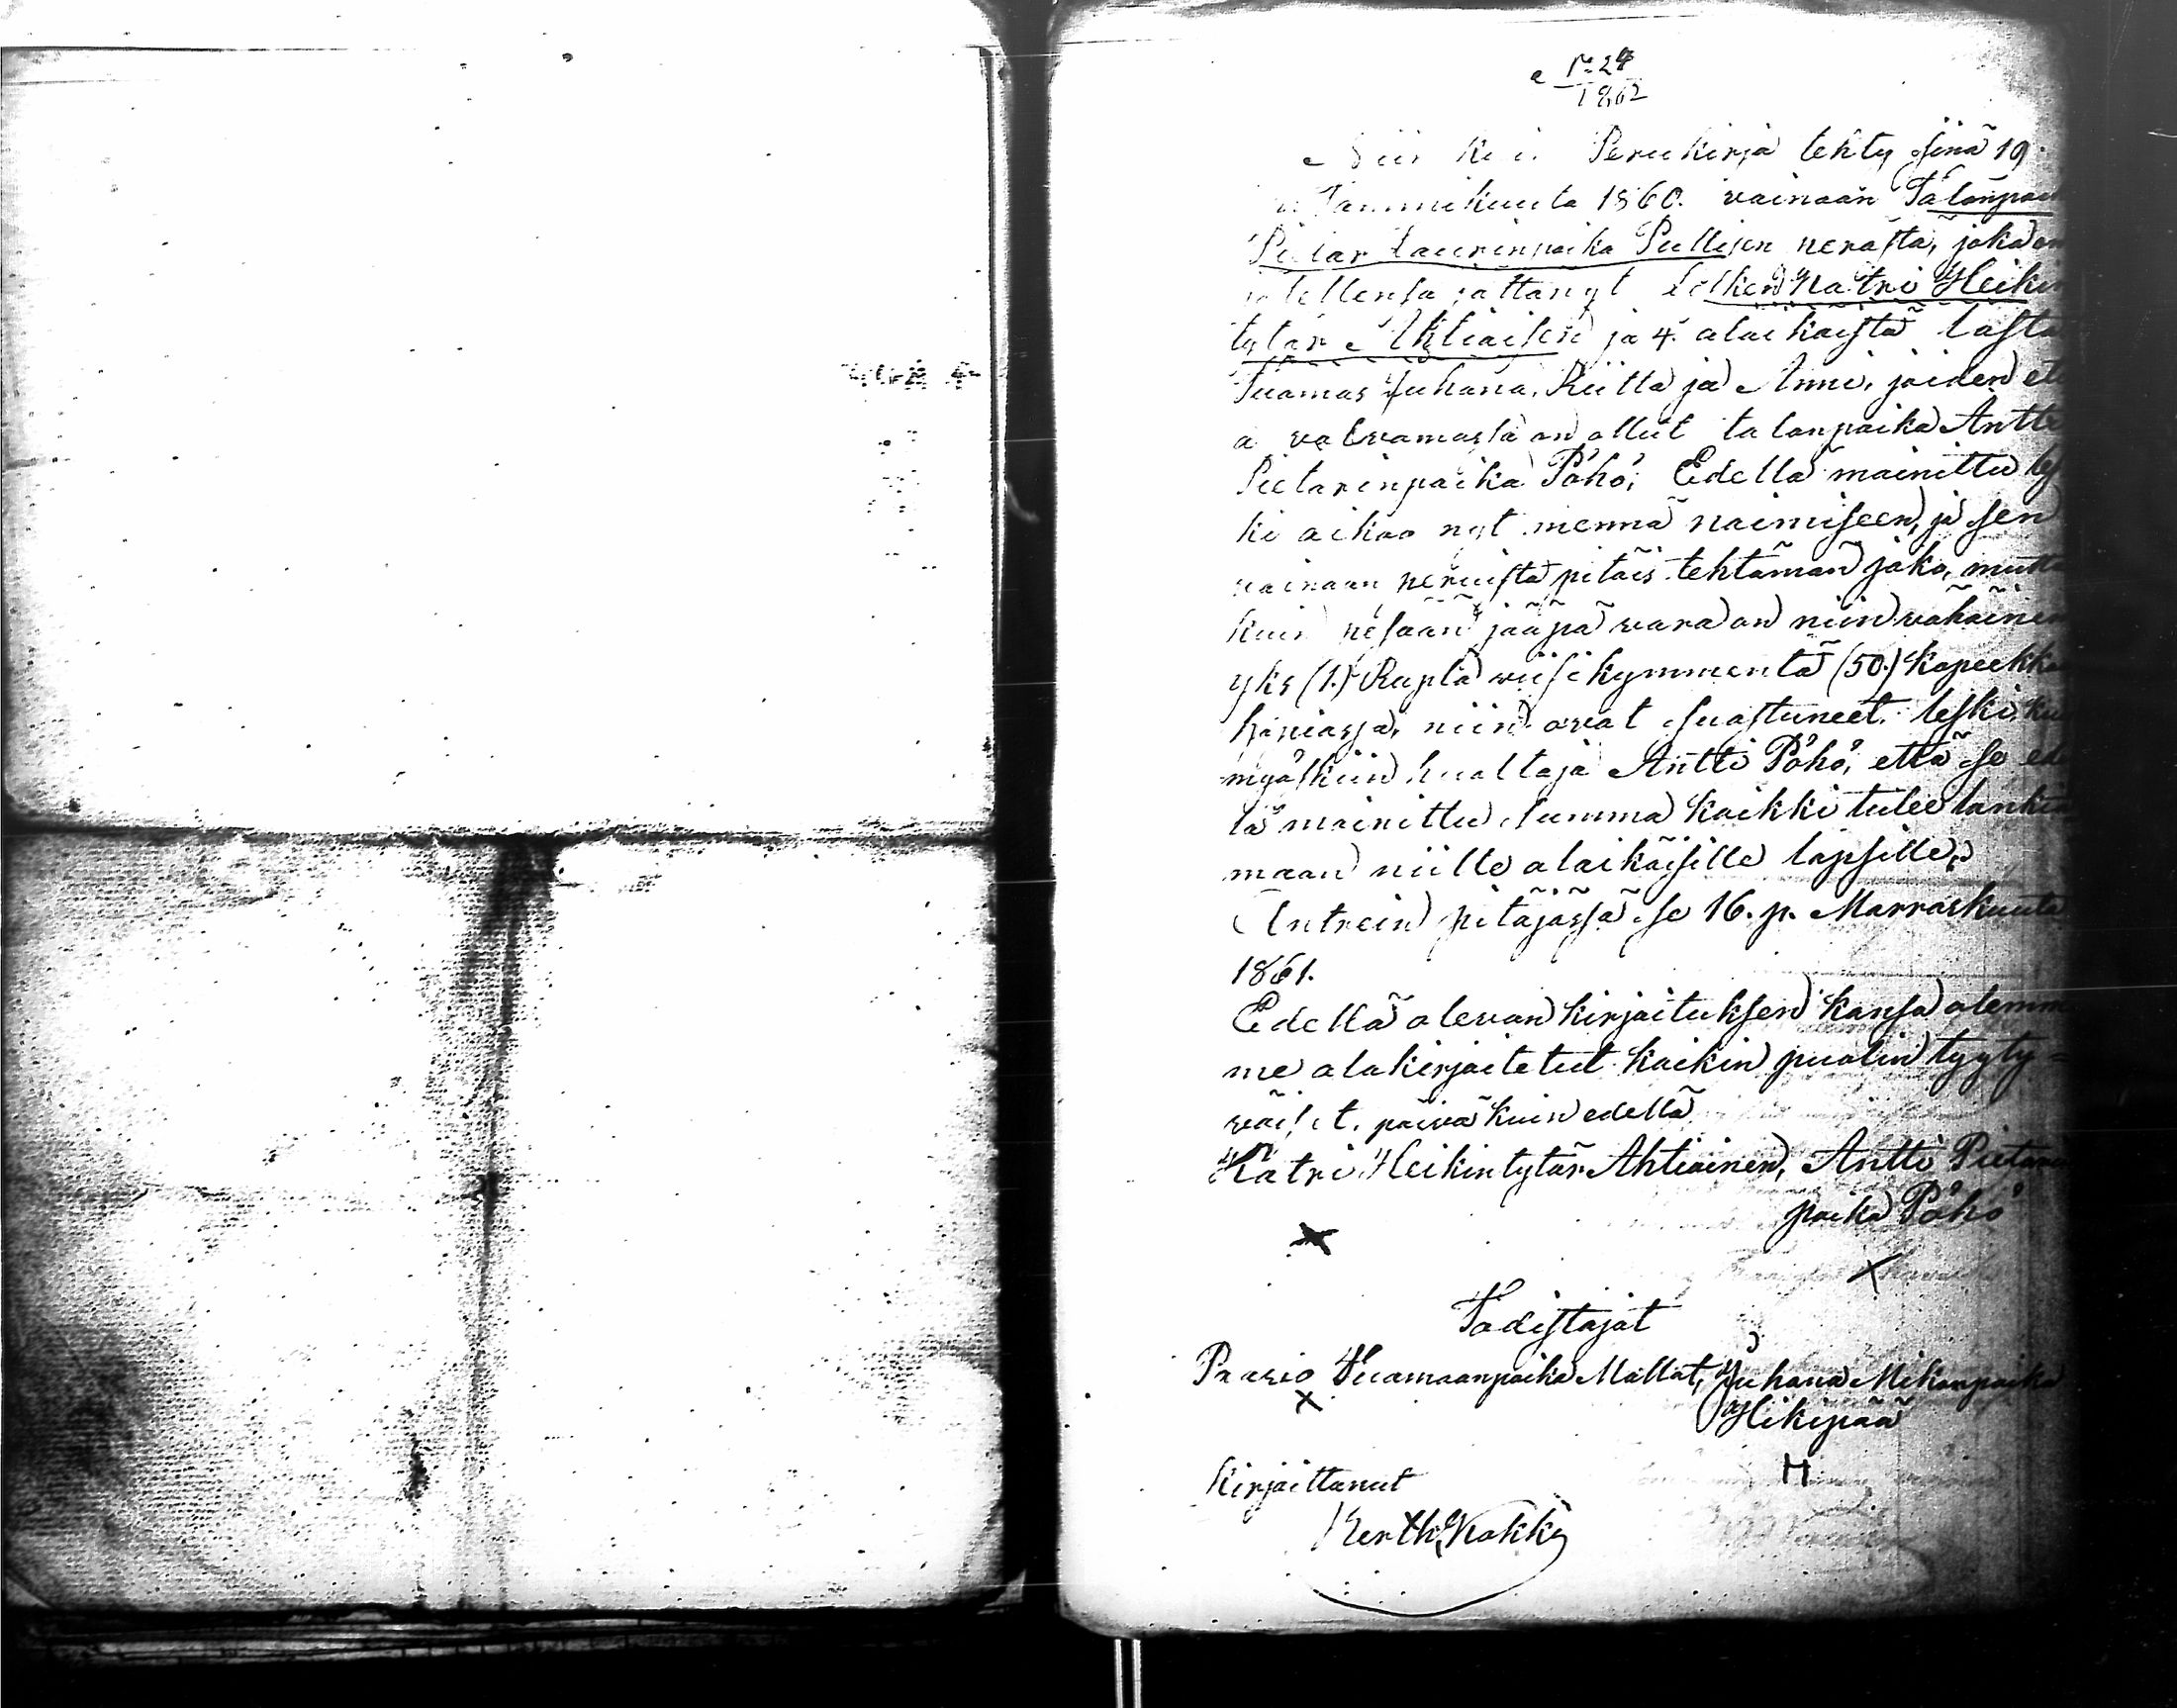 1862
Perukirja tehty sinä 19
Tammikuuta 1860. vainaan Talonpoi
Pietar Laurinpoika Pullisen perästä, joka on
jälkensä jättänyt Lesken Katri Heikin
tytär Ahtiaisen ja 4. alaikäistä lasta
Tuomas Juhana, Riitta ja Anni, joiden et
a valvomassa on ollut talonpoika Antti
Pietarinpoika Pöhö; Edellä mainittu les
ki aikoo nyt mennä naimiseen, ja sen
vainaan peruista pitäis tehtämän jako, mutta
kuin pesään jääpä vara on niin vähäinen
yks (1.) Rupla viisikymmentä (50.) kopeekka
hopiassa, niin ovat suostuneet leski ku
myöskiin huoltaja Antti Pöhö, että se ede
lä mainittu summa kaikki tulee lankia
maan niille alaikäisille lapsille;
Antrein pitäjässä se 16. p. Marraskuuta
1861.
Edellä olevan kirjoituksen kansa olemm
me alakirjoitetut kaikin puolin tyyty=
väiset. päivä kuin edellä
Katri Heikintytär Ahtiainen, Antti Pietarin
poika Pöhö
X X
Todistajat
Paavo Tuomaanpoika Mallat, Juhana Mikonpoika
X Hikipää
Kirjoittanut H
Kokki